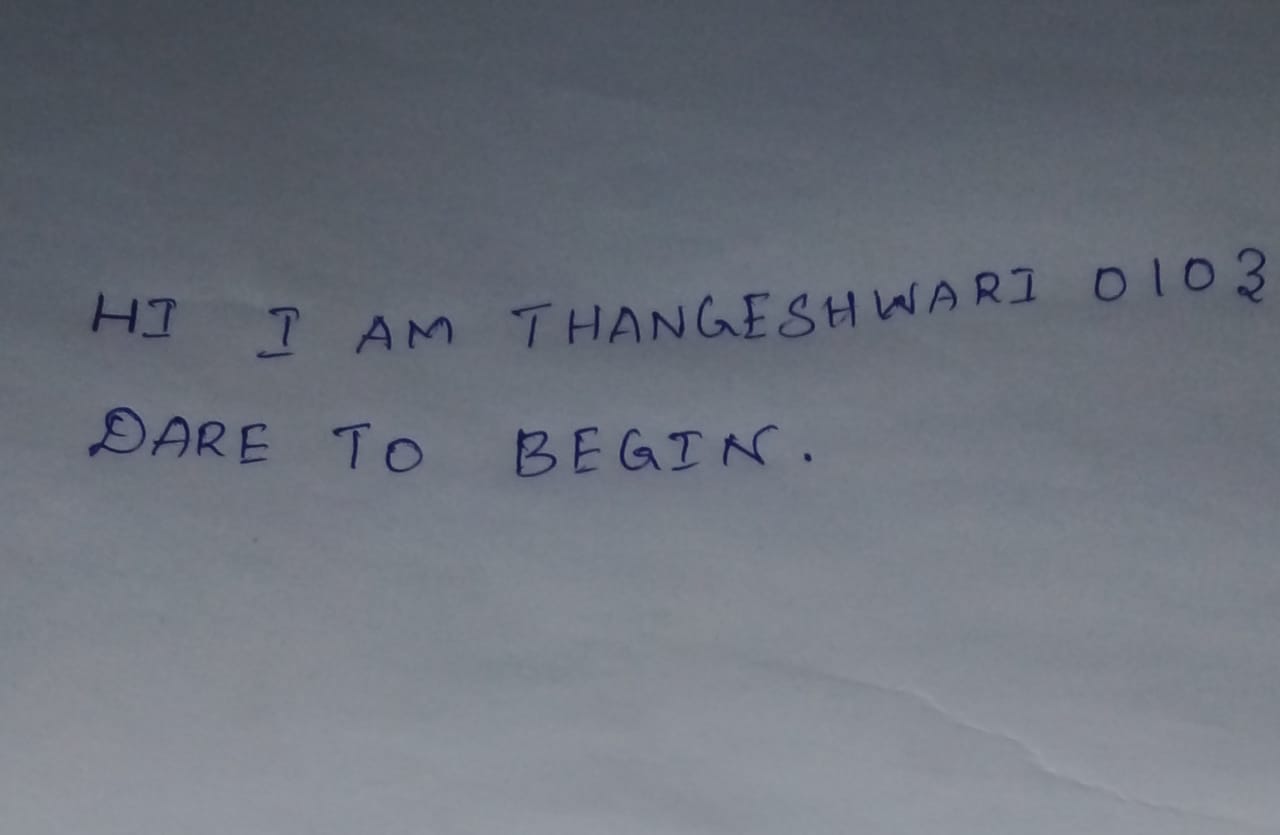 HI I AM THANGESHWARI 0103
DARE TO BEGIN.